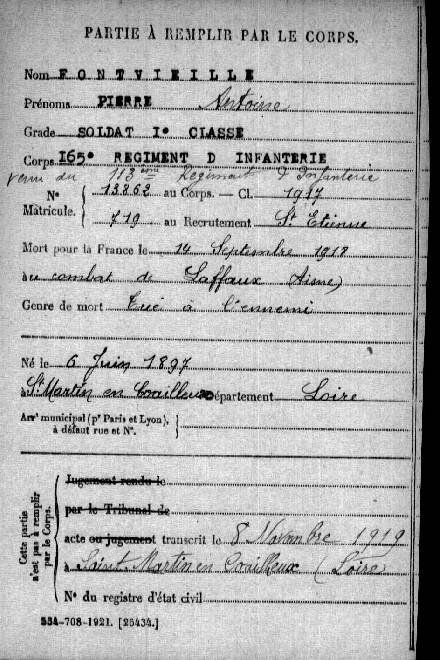 PARTIE À REMPLIR PAR LE CORPS.
Nom FONTVIEILLE
Prénoms PIERRE Antoine
Grade SOLDAT I° CLASSE
Corps 165° REGIMENT D INFANTERIE
venu du 113ème Régiment d'Infanterie
N° 13862 au Corps. — Cl. 1917
Matricule. 719 au Recrutement St Etienne
Mort pour la France le 14 Septembre 1918
à au combat de Laffaux (Aisne)
Genre de mort Tué à l'ennemi
Né le 6 Juin 1897
à St Martin en Coailleux Département Loire
Arrt municipal (pr Paris et Lyon),
à défaut rue et N°.
Cette partie
n'est pas à remplir
par le Corps.
Jugement rendu le
par le Tribunal de
acte ou jugement transcrit le 8 Novembre 1919
à Saint Martin en Coailleux (Loire)
N° du registre d'état civil
534-708-1921. [25434.]